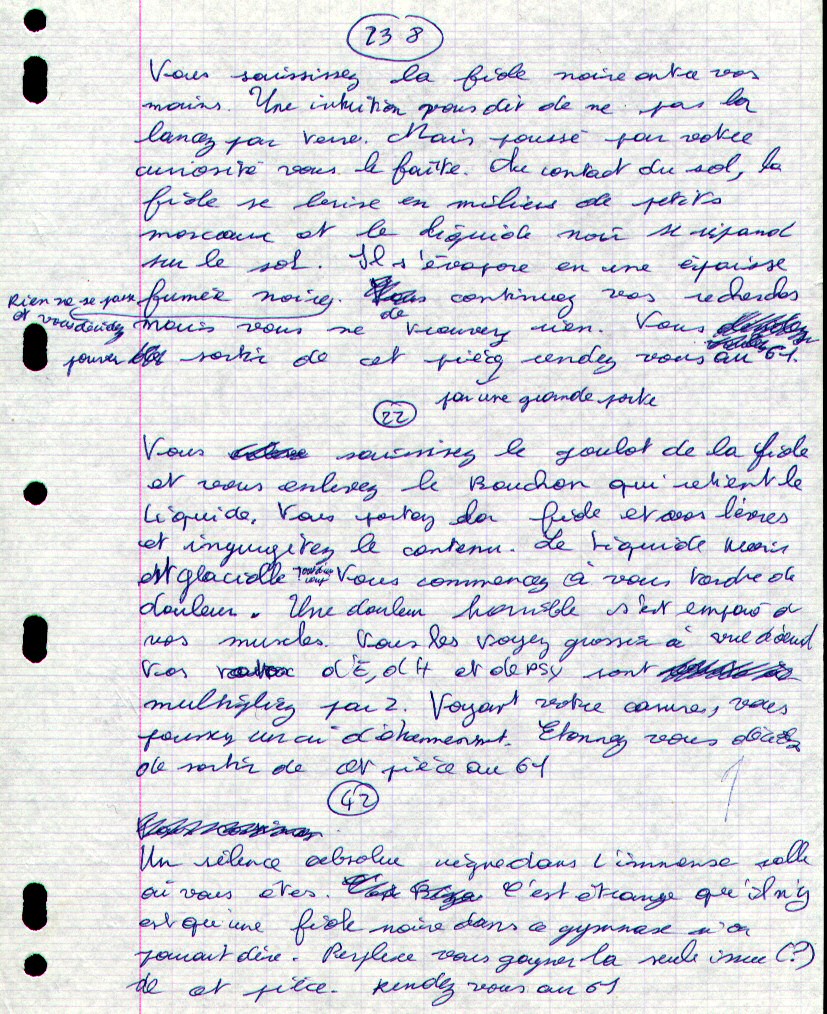 238
Vous saississez la fiole noire entre vos
mains. Une intuition vous dit de ne pas la
lancez par terre. Mais poussé par votre
curiosité vous le faîte. Au contact du sol, la
fiole se brise en milliers de petits
morceaux et le liquide noir se répand
sur le sol. Il s'évapore en une épaisse
Rien ne se passe fumée noire. continuez vos recherches
et vous décidez mais vous ne trouvez rien. Vous
de
sortir de cet pièce rendez vous au 61.
par une grande porte
22
Vous saisissez le goulot de la fiole
et vous enlevez le Bouchon qui retient le
Liquide. Vous portez la fiole et vos lèvres
et ingurgitez le contenu. Le Liquide
est glacialle Tout d'un coup Vous commencez à vous tordre de
douleur. Une douleur horrible s'est emparé de
vos muscles. Vous les voyez grossir à vue d'oeuil
Vos d'E, d'H et de PSY sont
multipliez par 2. Voyant votre carrure, vous
poussez un cri d'étonnement. Etonnez vous décidez
de sortir de cet pièce au 61
42
Un silence absolue règne dans l'immense salle
où vous êtes. C'est étrange qu'il n'y
est qu'une fiole noire dans ce gymnase
. Perplexe vous gagner la seule issue (?)
de cet pièce. Rendez vous au 61